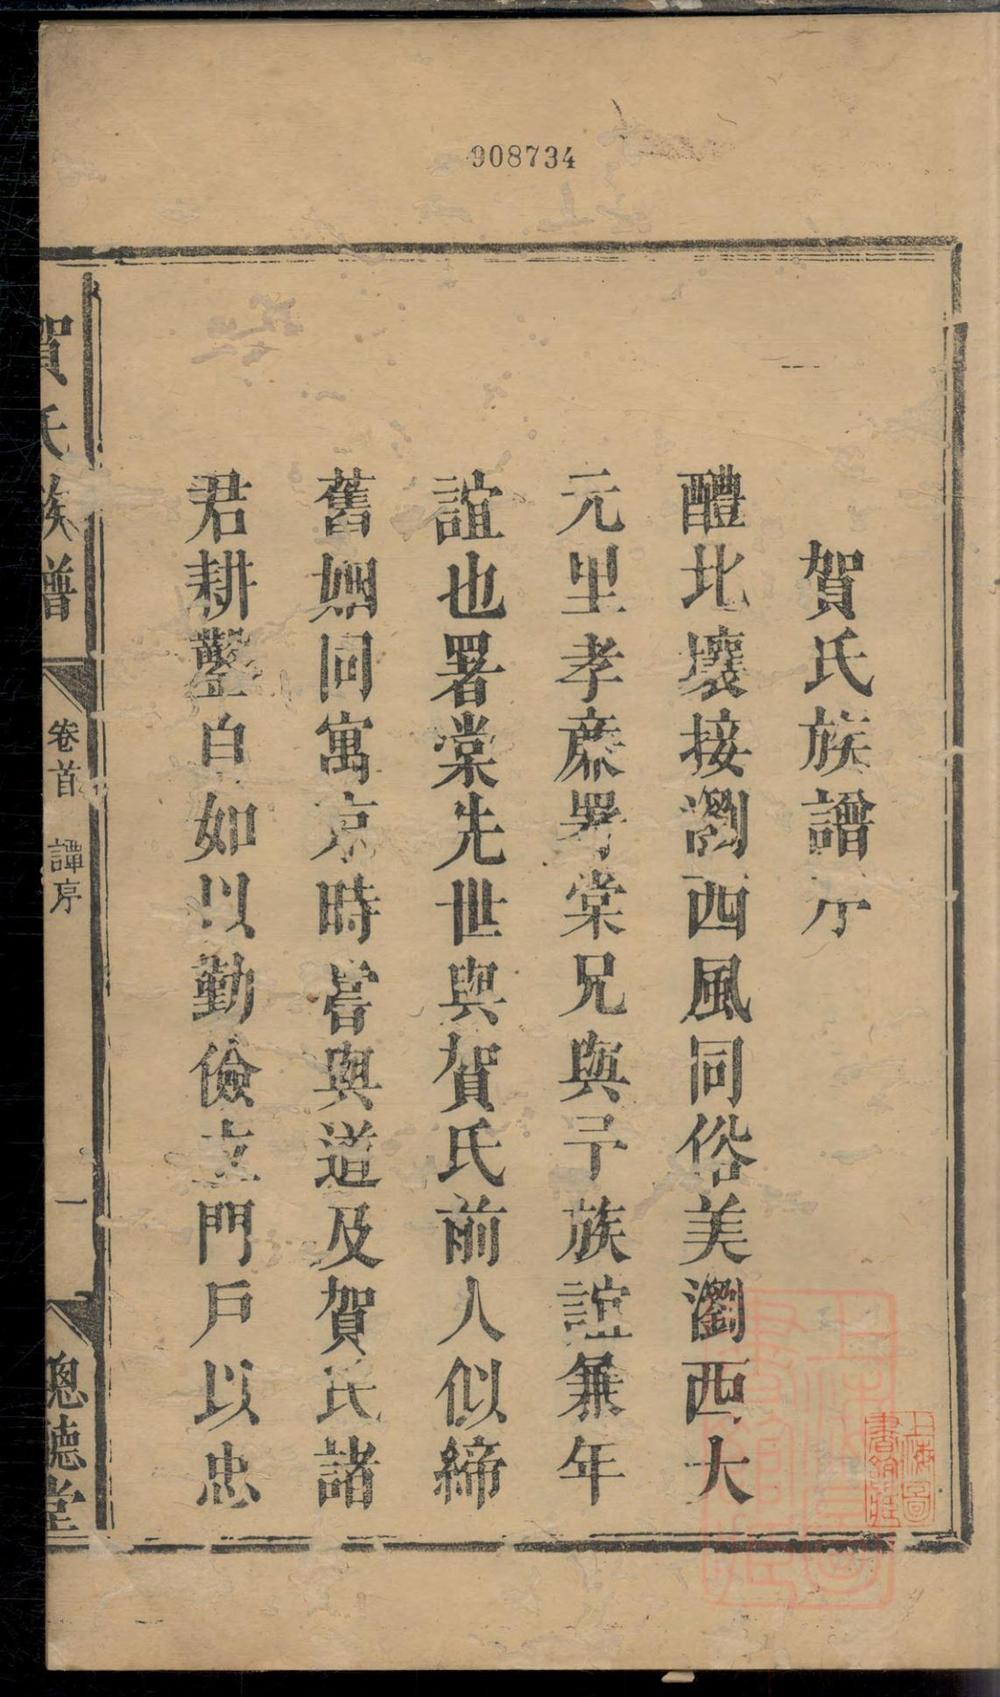 908734
賀氏族譜序
醴北壤接瀏西風同俗美瀏西大
元里孝廉署棠兄與予族誼兼年
誼也署棠先世與賀氏前人似締
舊姻同寓京時嘗與道及賀氏諸
君耕鑿自如以勤儉立門戶以忠
賀氏族譜
卷首 譚序
一
聰德堂
上海圖書館藏